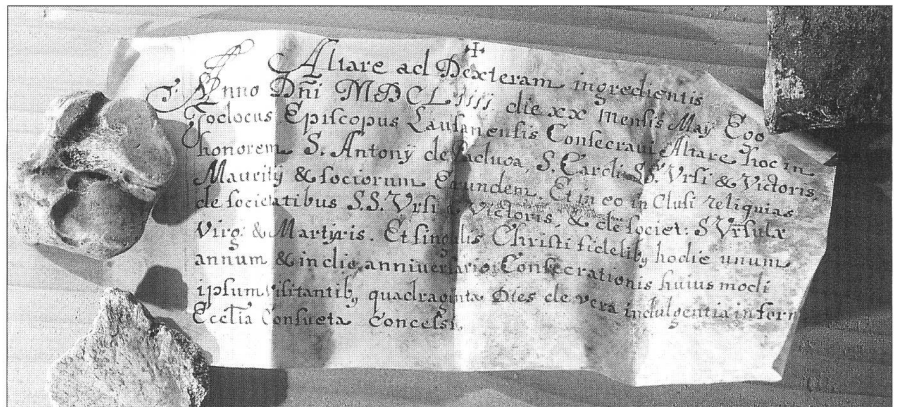 ✝
Altare ad Dexteram ingredientis
Anno Dñi MDCLIIII die xx mensis Maÿ Ego
Jodocus Episcopus Lausanensis Consecravi Altare hoc in
honorem S. Antonÿ de Padova, S. Caroli SS. Vrsi & Victoris,
Mauritÿ & sociorum Eiundem. Et in eo in Clusi reliquias
de societatibus S.S. Vrsi & Victoris, & de societ: S Vrsulæ
Virg: & Martyris. Et singulis Christi fidelib, hodie unum
annum & in die anniversario Consecrationis huius modi
ipsum visitantib, quadraginta Dies de vera indulgentia in form
Eccl̃ia Consueta Concessi.